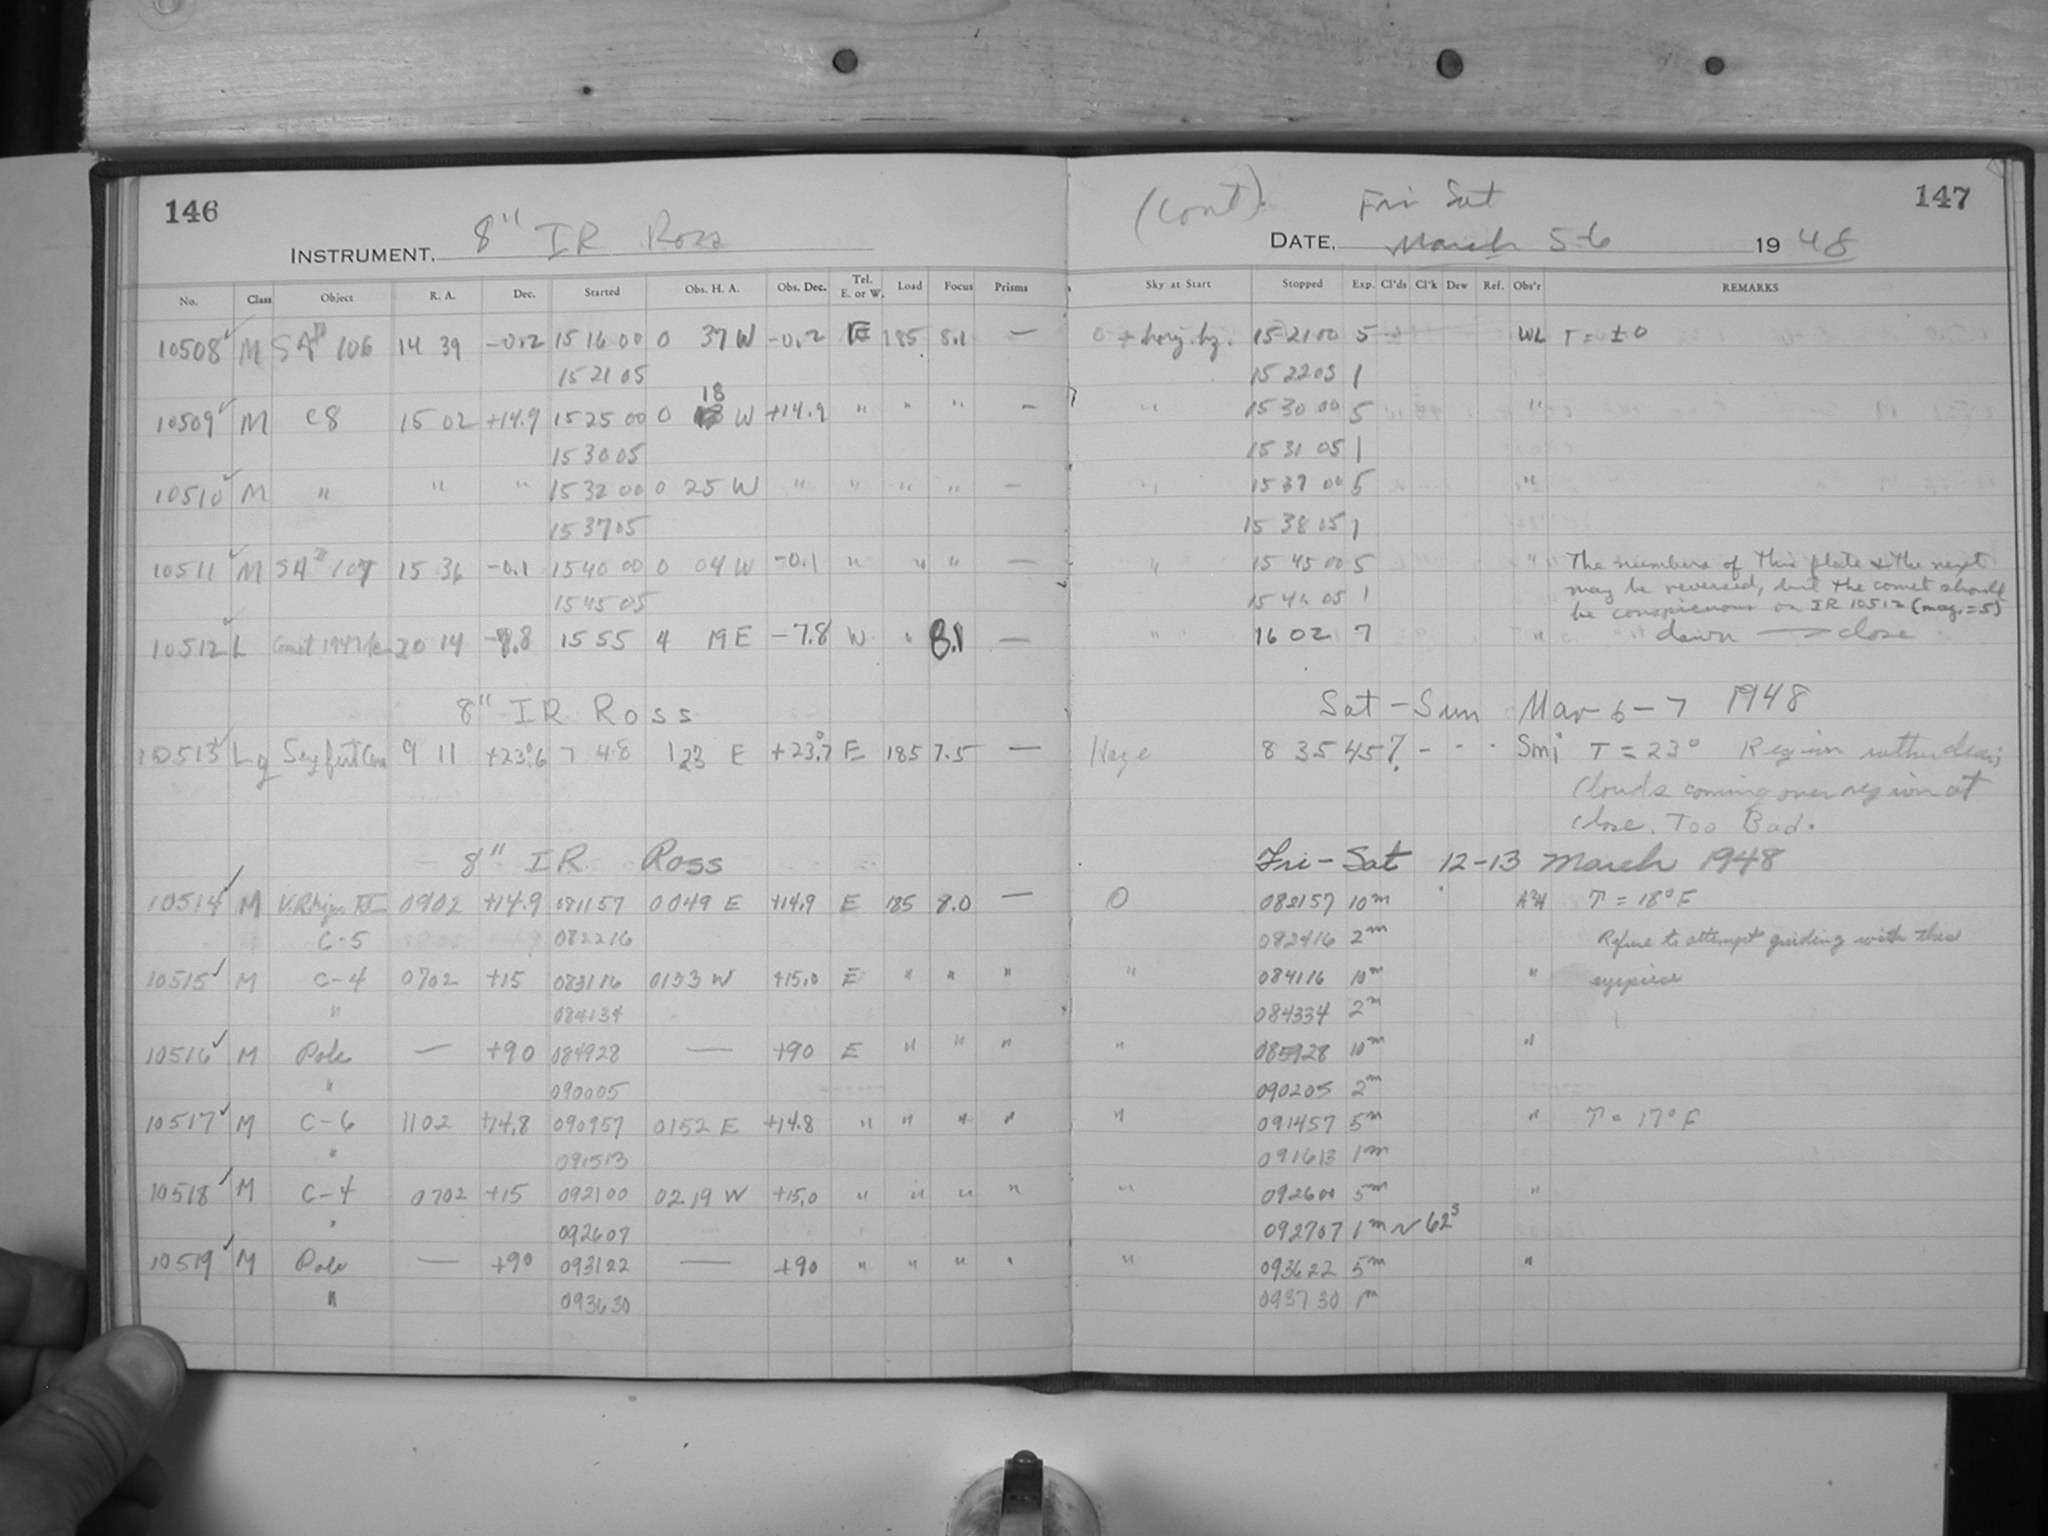 146
8" IR Ross
INSTRUMENT.
No. Class Object R. A. Dec. Started Obs. H. A. Obs. Dec. Tel. E. or W. Load Focus Prisms
10508 M SA 106 14 39 -0.2 15 16 00 0 37 W -0.2 E 185 8.1 —
15 21 05
18
10509 M C8 15 02 +14.9 15 25 00 0 W +14.9 " " " —
15 30 05
10510 M " " " 15 32 00 0 25 W " " " " —
15 37 05
10511 M SA 107 15 36 -0.1 15 40 00 0 04 W -0.1 " " " —
15 45 05
10512 L Comet 1947 20 14 -7.8 15 55 4 19 E -7.8 W " 8.1 —
8" IR Ross
10513 Lg Seyfert 9 11 +23.6 7 48 1 23 E +23.7 E 185 7.5 —
8" IR Ross
10514 M 0902 +14.9 081157 0049 E +14.9 E 185 8.0 —
C-5 082216
10515 M C-4 0702 +15 083116 0133 W +15.0 E " " "
" 084134
10516 M Pole — +90 084928 — +90 E " " "
" 090005
10517 M C-6 1102 +14.8 090957 0152 E +14.8 " " " "
" 091513
10518 M C-4 0702 +15 092100 0219 W +15.0 " " " "
" 092607
10519 M Pole — +90 093122 — +90 " " " "
" 093630
(Cont). Fri Sat 147
DATE. March 5-6 1948
Sky at Start Stopped Exp. Cl'ds Cl'k Dew Ref. Obs'r REMARKS
0 + horiz. hz. 15 21 00 5 WL T = ±0
15 22 05 1
" 15 30 00 5 "
15 31 05 1
" 15 37 00 5 "
15 38 05 1
" 15 45 00 5 " The numbers of this plate & the next
15 46 05 1 may be reversed, but the comet should
be conspicuous on IR 10512 (mag. = 5)
" " 16 02 7 " dawn → close
Sat - Sun Mar 6-7 1948
Haze 8 35 45? - - - Smi T = 23° Region rather clear;
Clouds coming over region at
close. Too Bad.
Fri - Sat 12-13 March 1948
O 082157 10m T = 18° F
082416 2m Refuse to attempt guiding with this
" 084116 10m " eyepiece
084334 2m
" 085928 10m "
090205 2m
" 091457 5m " T = 17° F
091613 1m
" 092600 5m "
092707 1m ~ 62s
" 093622 5m "
093730 1m